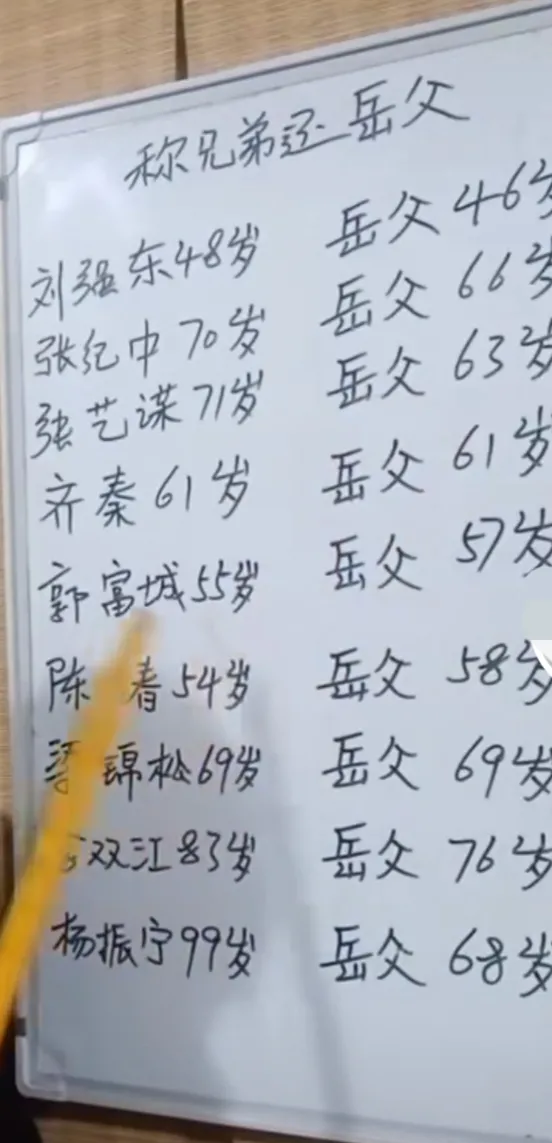 称兄弟还岳父
刘强东48岁 岳父46岁
张纪中70岁 岳父66岁
张艺谋71岁 岳父63岁
齐秦61岁 岳父61岁
郭富城55岁 岳父57岁
陈 春54岁 岳父58岁
锦松69岁 岳父69岁
双江83岁 岳父76岁
杨振宁99岁 岳父68岁